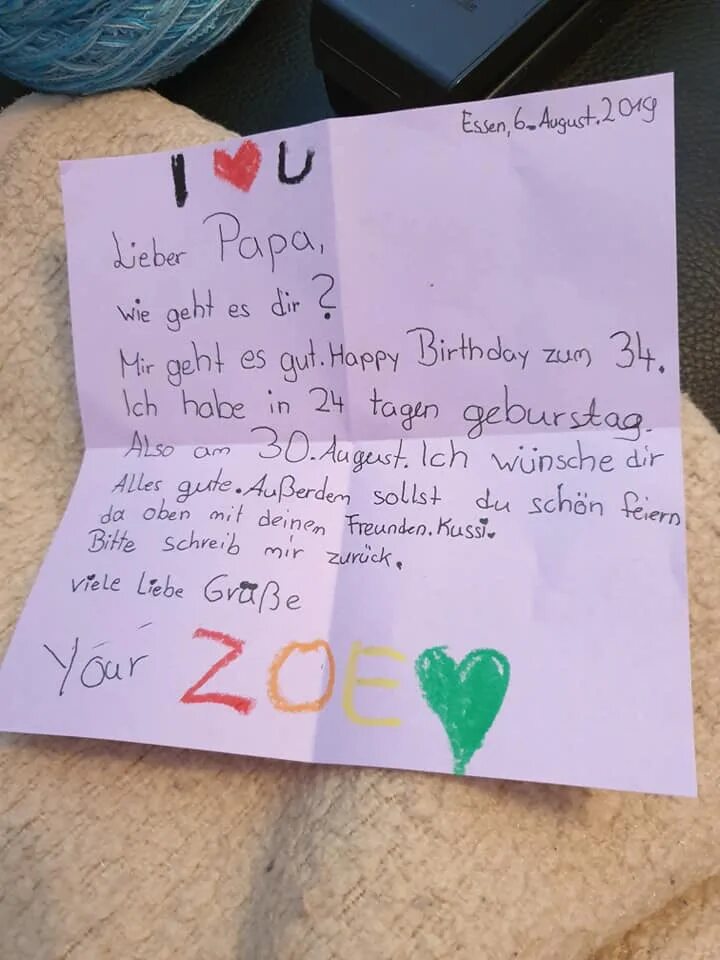 Essen, 6. August. 2019
I ❤ U
Lieber Papa,
wie geht es dir?
Mir geht es gut. Happy Birthday zum 34.
Ich habe in 24 tagen geburstag.
Also am 30. August. Ich wünsche dir
Alles gute. Außerdem sollst du schön feiern
da oben mit deinem Freunden. Kussi.
Bitte schreib mir zurück.
viele liebe Grüße
Your ZOE 💚